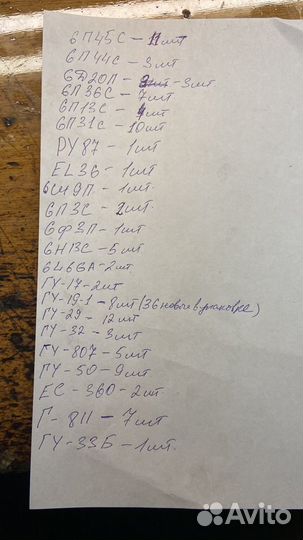 6П45С - 11шт
6П44С - 3шт
6Д20П - 3шт
6П36С - 7шт
6П13С - 4шт
6П31С - 10шт
PY87 - 1шт
EL36 - 1шт
6И9П - 1шт.
6П3С - 2шт.
6Ф3П - 1шт
6Н13С - 5шт
6466A - 2шт
ГУ-17 - 2шт
ГУ-19-1 - 8шт (3б новые в упаковке)
ГУ-29 - 12шт
ГУ-32 - 3шт
ГУ-807 - 5шт
ГУ-50 - 9шт
ЕС-360 - 2шт.
Г-811 - 7шт
ГУ-33Б - 1шт.
Avito